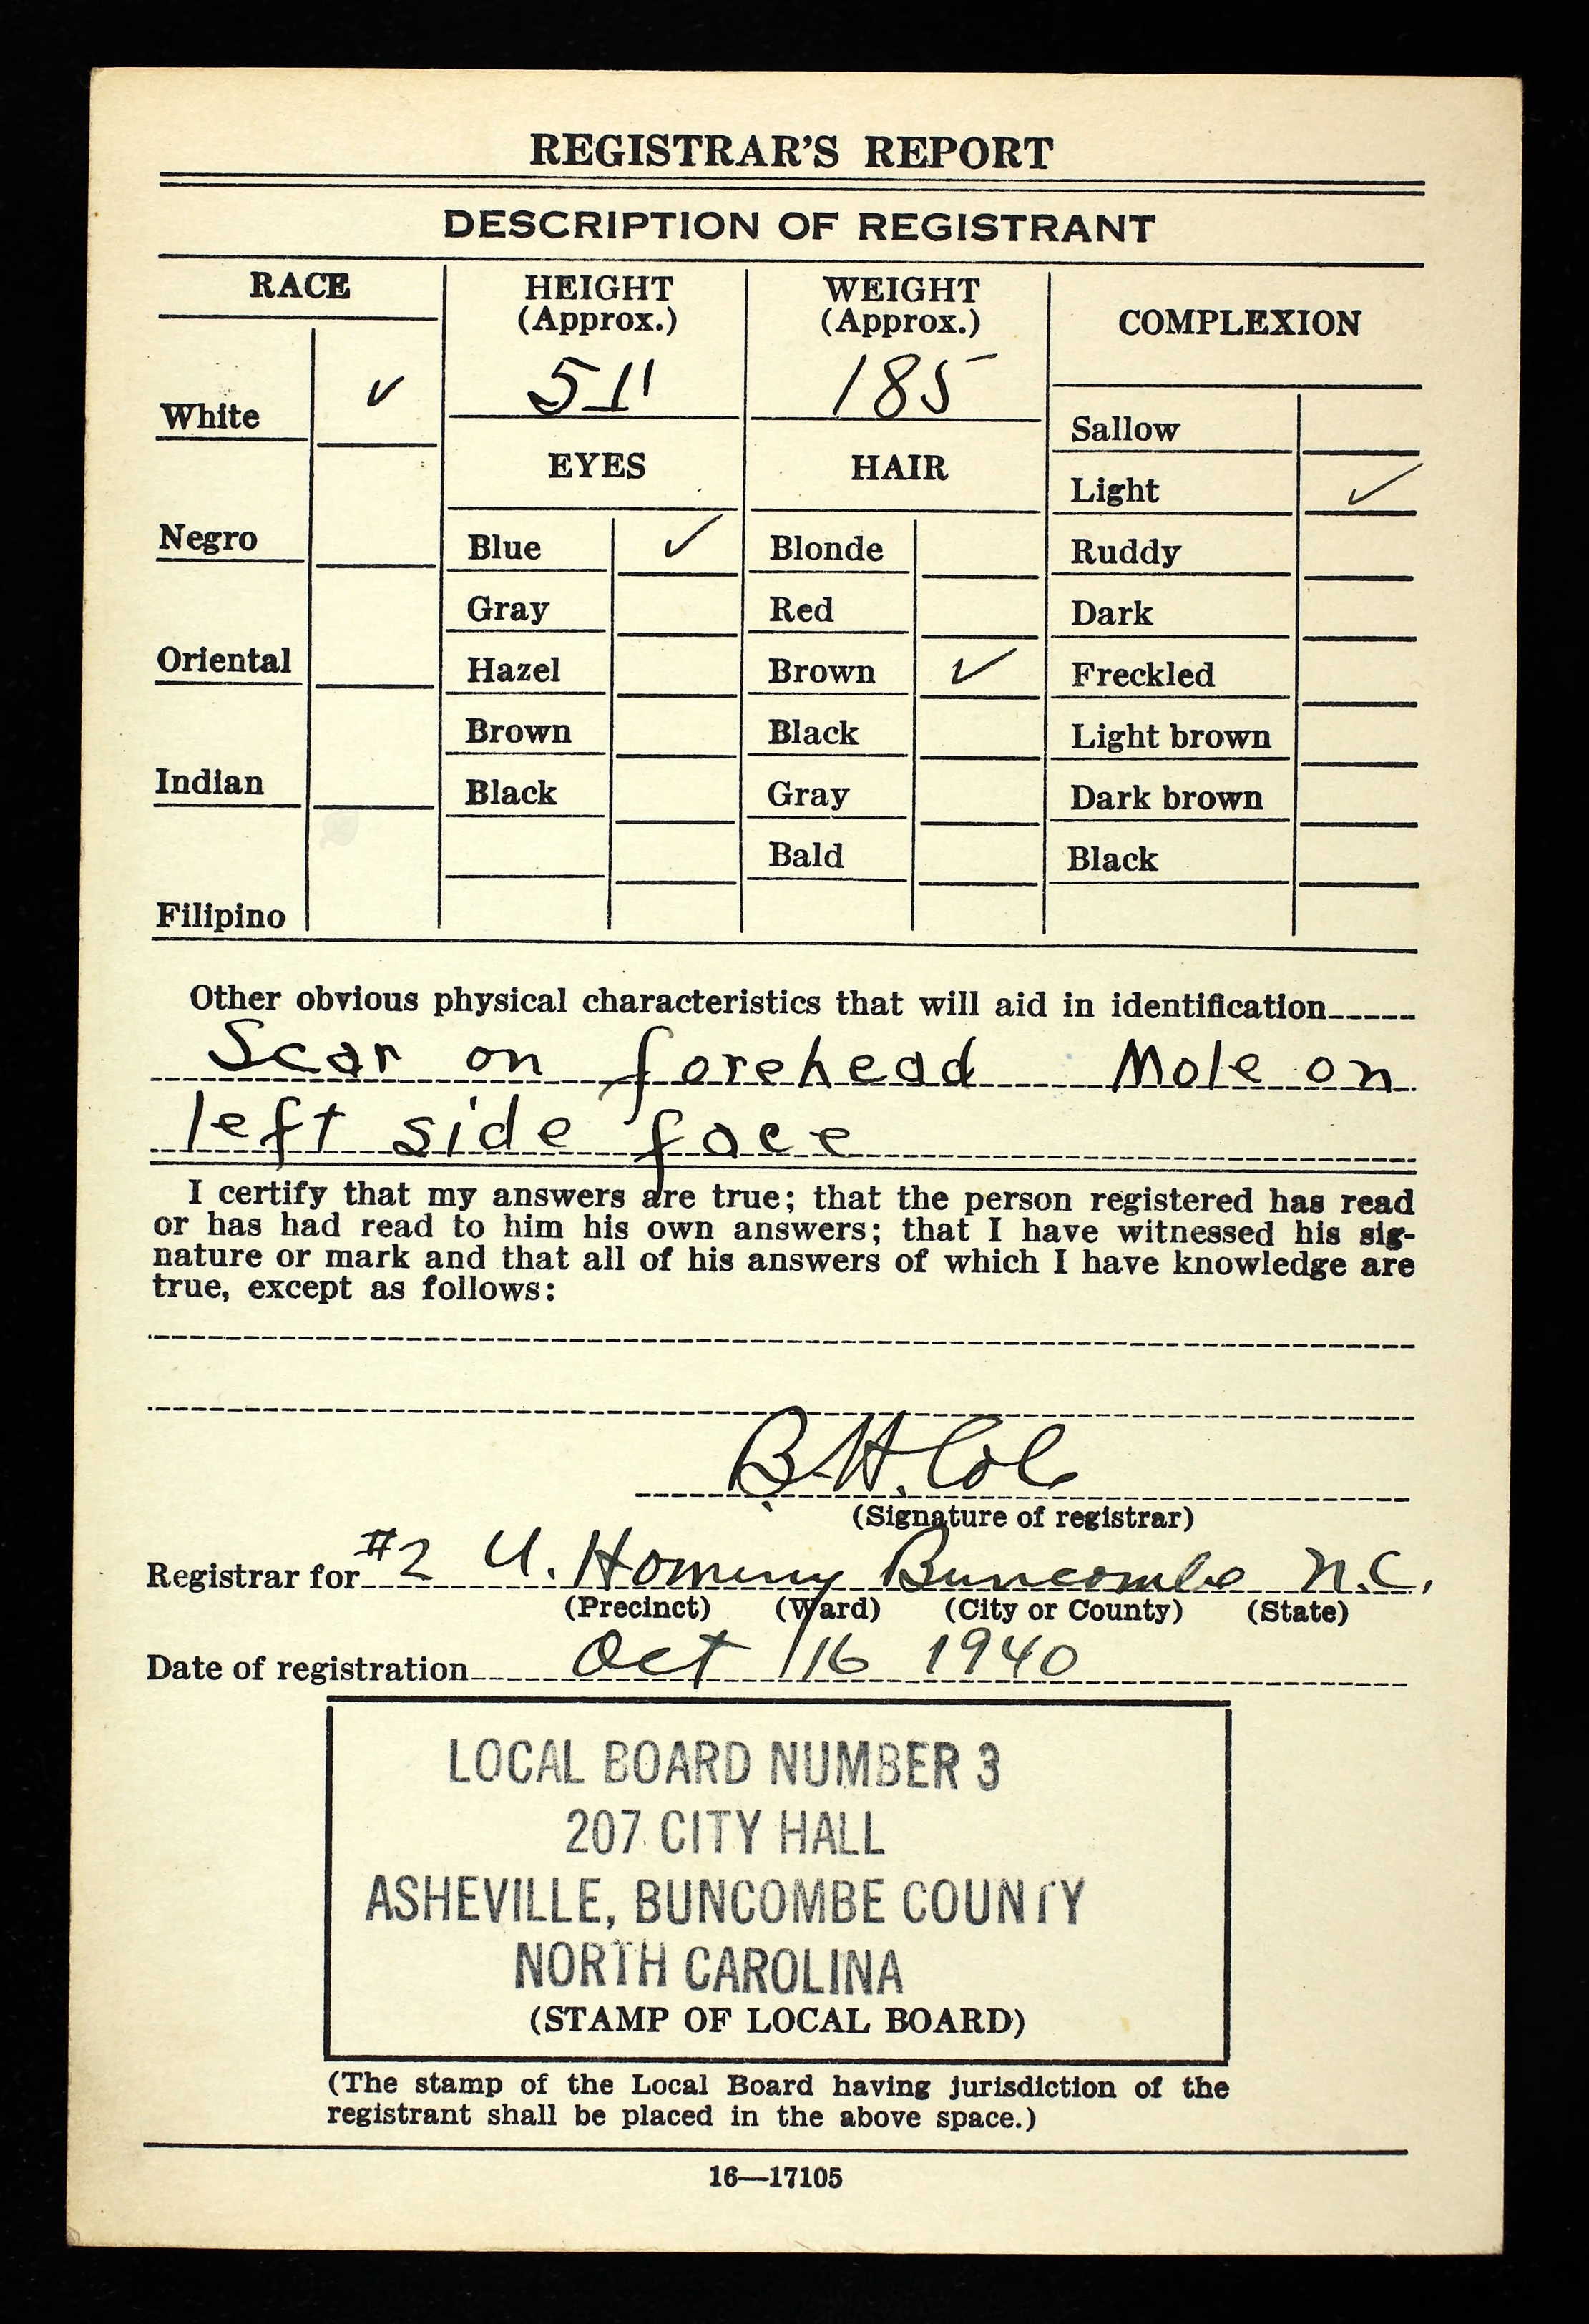 REGISTRAR'S REPORT
DESCRIPTION OF REGISTRANT
RACE
HEIGHT
(Approx.)
WEIGHT
(Approx.)
COMPLEXION
White ✓
5 11
185
Sallow
EYES
HAIR
Light ✓
Negro
Blue ✓
Blonde
Ruddy
Gray
Red
Dark
Oriental
Hazel
Brown ✓
Freckled
Brown
Black
Light brown
Indian
Black
Gray
Dark brown
Bald
Black
Filipino
Other obvious physical characteristics that will aid in identification
Scar on forehead Mole on
left side face
I certify that my answers are true; that the person registered has read
or has had read to him his own answers; that I have witnessed his sig-
nature or mark and that all of his answers of which I have knowledge are
true, except as follows:
B. H. Cole
(Signature of registrar)
Registrar for #2 U. Hominy Buncombe N.C.
(Precinct) (Ward) (City or County) (State)
Date of registration Oct 16 1940
LOCAL BOARD NUMBER 3
207 CITY HALL
ASHEVILLE, BUNCOMBE COUNTY
NORTH CAROLINA
(STAMP OF LOCAL BOARD)
(The stamp of the Local Board having jurisdiction of the
registrant shall be placed in the above space.)
16—17105